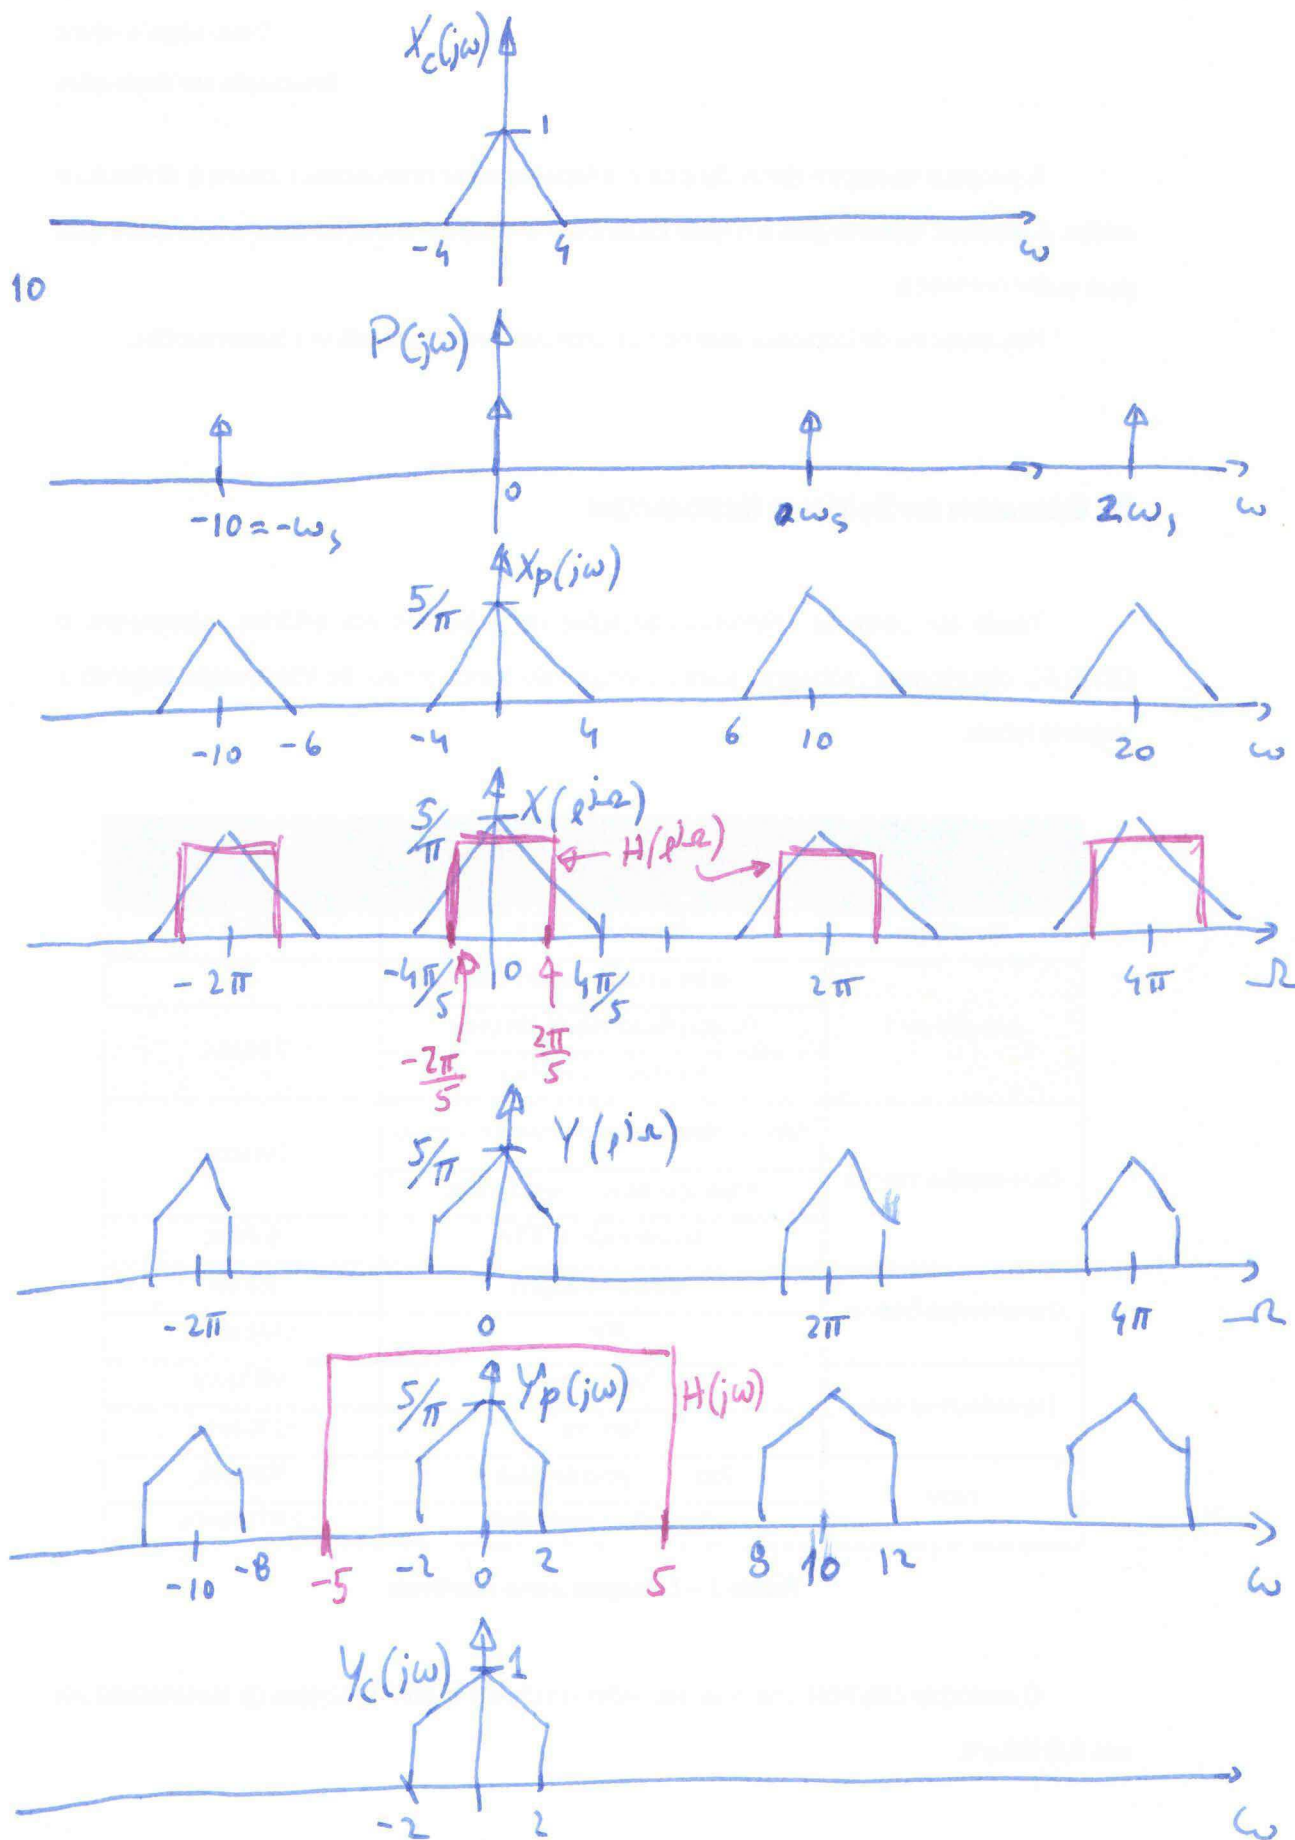 X_c(jω)
1
-4 4 ω
10
P(jω)
0
-10 = -ω_s 2ω_s 2ω_s ω
X_p(jω)
5/π
-10 -6 -4 4 6 10 20 ω
X(e^{jΩ})
5/π
H(e^{jΩ})
-2π -4π/5 0 4π/5 2π 4π Ω
-2π/5 2π/5
Y(e^{jΩ})
5/π
-2π 0 2π 4π Ω
Y_p(jω) H(jω)
5/π
-10 -8 -5 -2 0 2 5 8 10 12 ω
Y_c(jω) 1
-2 2 ω